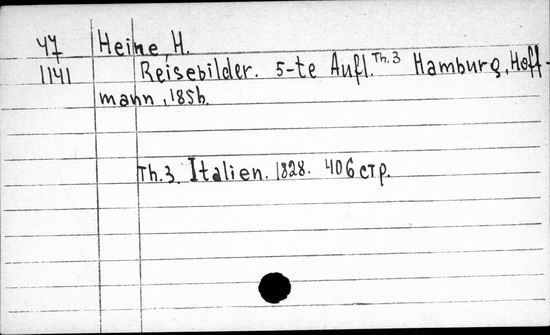 47 Heine, H.
1141 Reisebilder. 5-te Aufl. Th.3 Hamburg, Hoff-
mann, 1856.
Th.3. Italien. 1828. 406 стр.